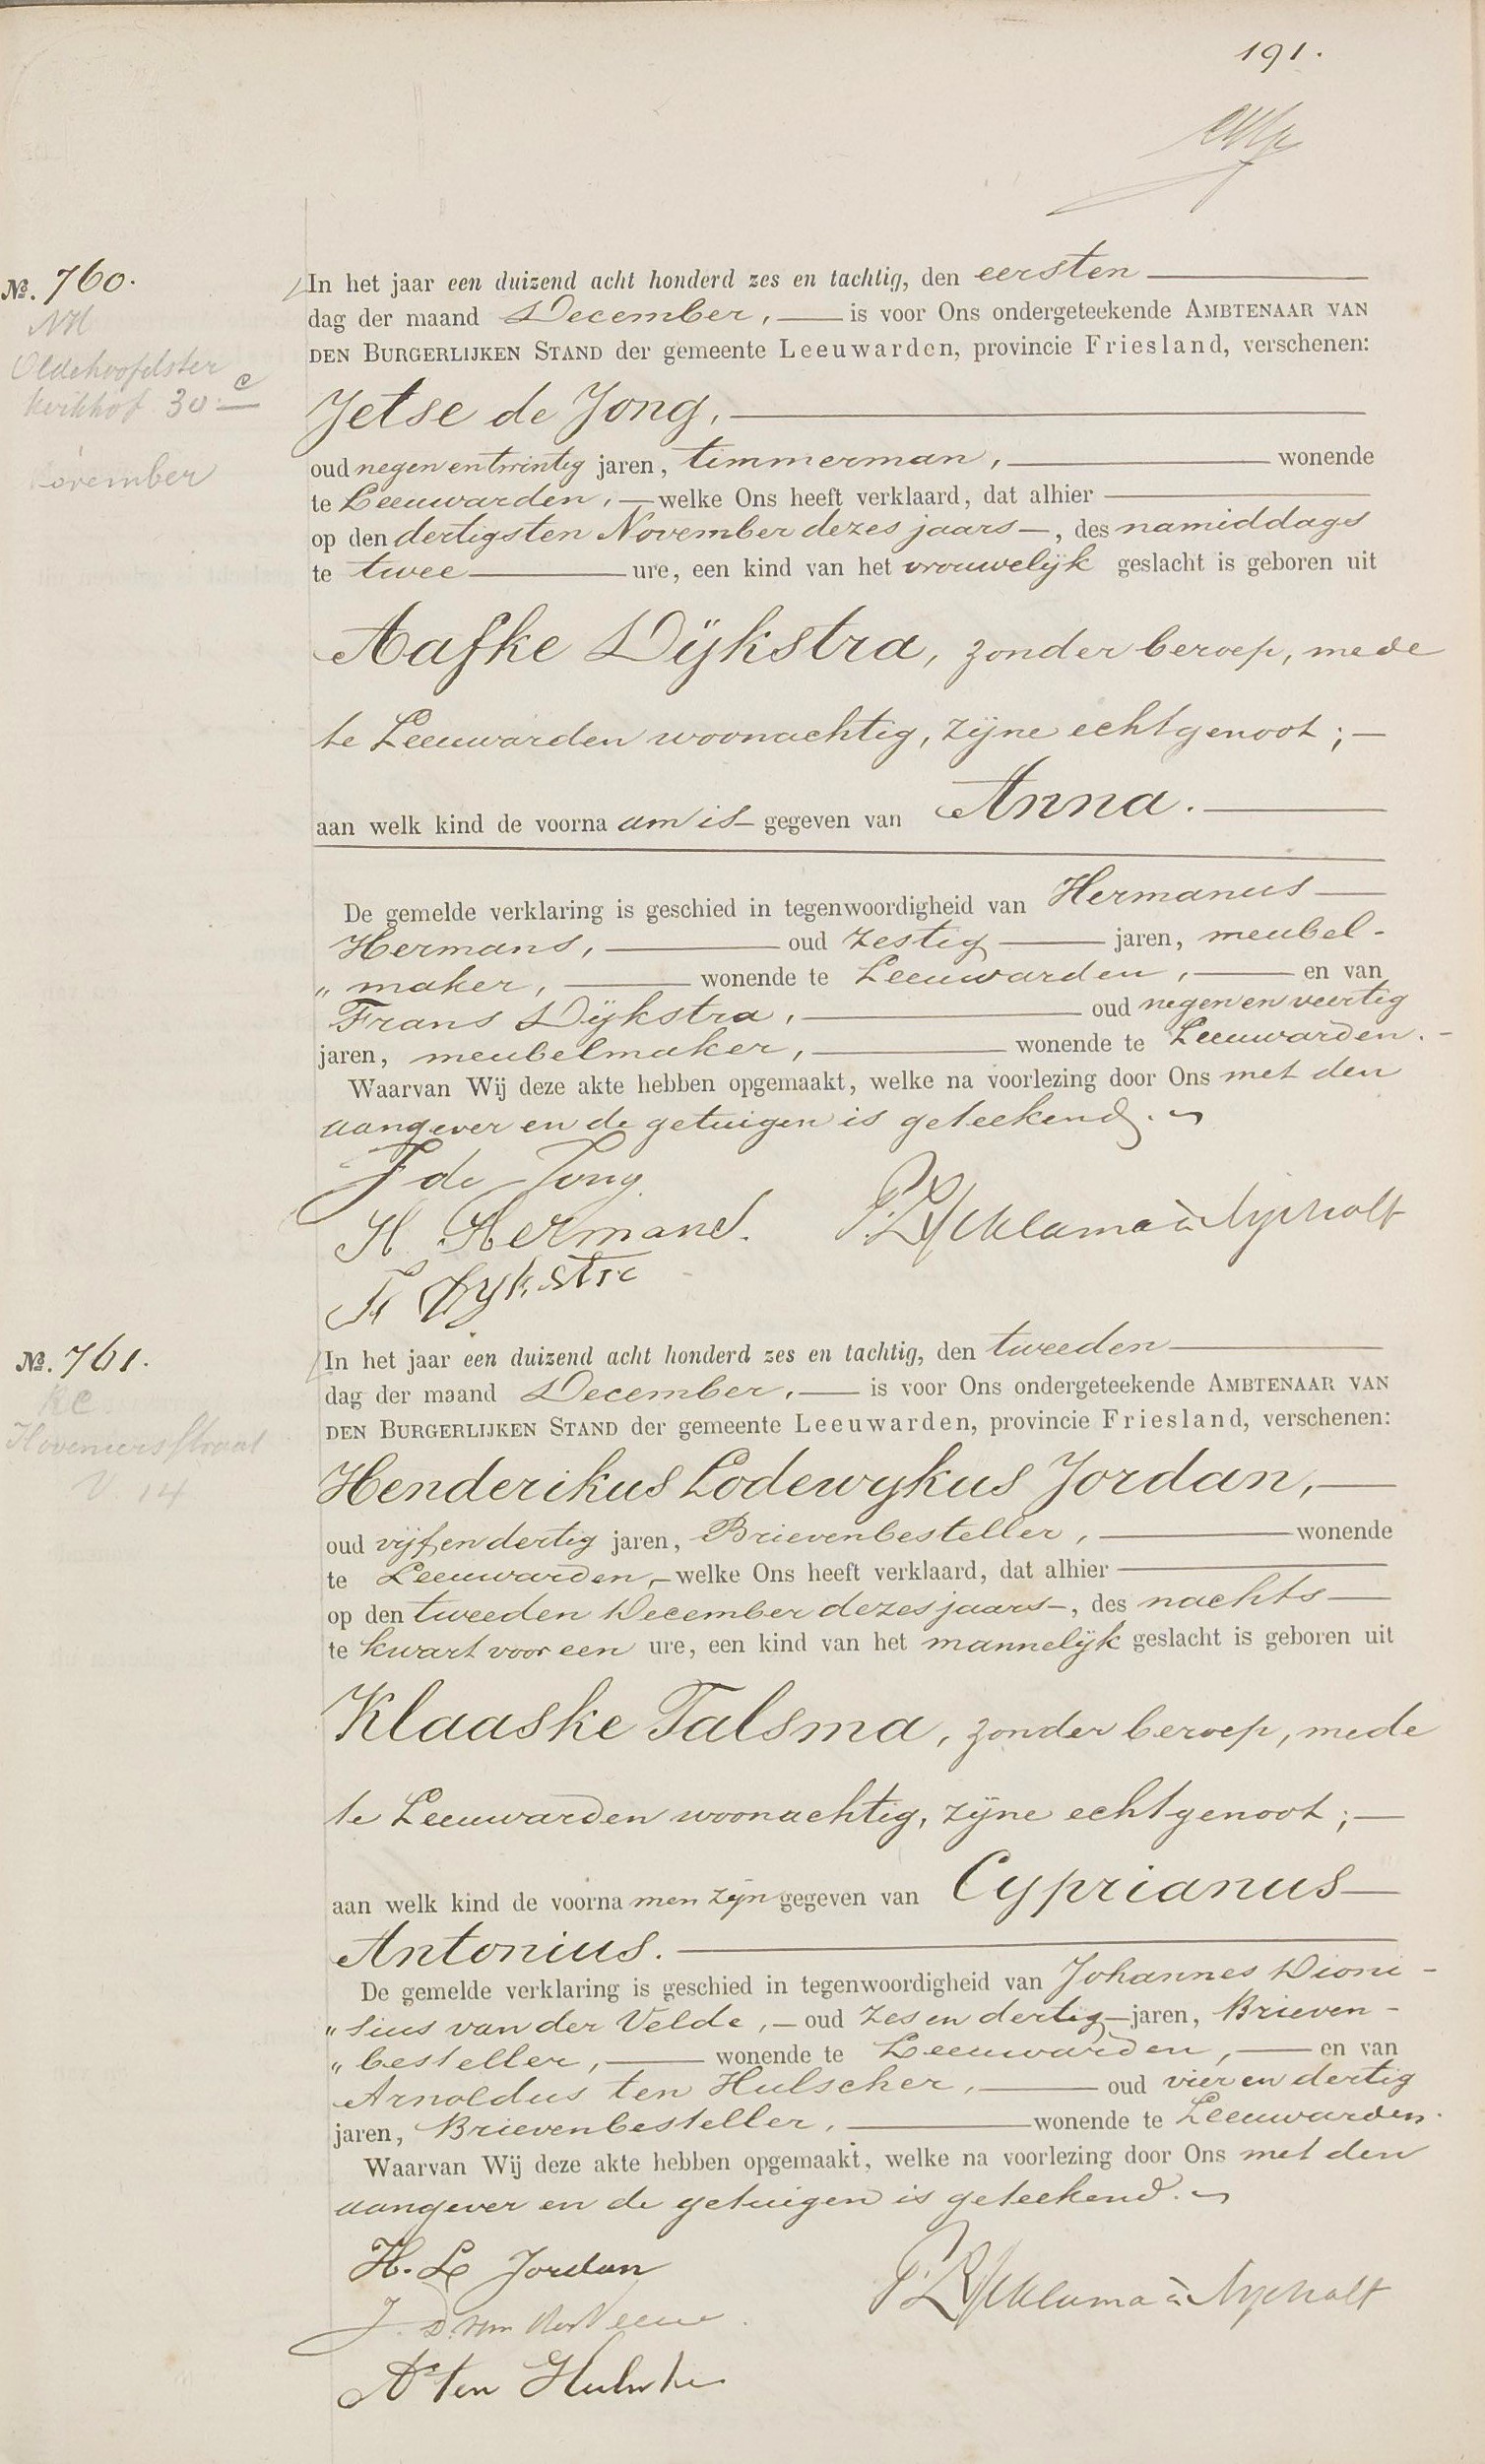 191.
№. 760.
NH
Oldehoofdster
kerkhof 30 c
November
In het jaar een duizend acht honderd zes en tachtig, den eersten
dag der maand December, is voor Ons ondergeteekende AMBTENAAR VAN
DEN BURGERLIJKEN STAND der gemeente Leeuwarden, provincie Friesland, verschenen:
Jetse de Jong,
oud negen en twintig jaren, timmerman, wonende
te Leeuwarden, welke Ons heeft verklaard, dat alhier
op den dertigsten November dezes jaars, des namiddags
te twee ure, een kind van het vrouwelijk geslacht is geboren uit
Aafke Dijkstra, zonder beroep, mede
te Leeuwarden woonachtig, zijne echtgenoot;
aan welk kind de voorna am is gegeven van Anna.
De gemelde verklaring is geschied in tegenwoordigheid van Hermanus
Hermans, oud zestig jaren, meubel-
„ maker, wonende te Leeuwarden, en van
Frans Dijkstra, oud negen en veertig
jaren, meubelmaker, wonende te Leeuwarden.
Waarvan Wij deze akte hebben opgemaakt, welke na voorlezing door Ons met den
aangever en de getuigen is geteekend.
J de Jong
H Hermans.
F Dykstra
№. 761.
RC
Hoveniersstraat
V. 14
In het jaar een duizend acht honderd zes en tachtig, den tweeden
dag der maand December, is voor Ons ondergeteekende AMBTENAAR VAN
DEN BURGERLIJKEN STAND der gemeente Leeuwarden, provincie Friesland, verschenen:
Henderikus Lodewykus Jordan,
oud vijf en dertig jaren, Brievenbesteller, wonende
te Leeuwarden, welke Ons heeft verklaard, dat alhier
op den tweeden December dezes jaars, des nachts
te kwart voor een ure, een kind van het mannelijk geslacht is geboren uit
Klaaske Talsma, zonder beroep, mede
te Leeuwarden woonachtig, zijne echtgenoot;
aan welk kind de voorna men zijn gegeven van Cyprianus
Antonius.
De gemelde verklaring is geschied in tegenwoordigheid van Johannes Dioni-
„ sius van der Velde, oud zes en dertig jaren, Brieven-
„ besteller, wonende te Leeuwarden, en van
Arnoldus ten Hulscher, oud vier en dertig
jaren, Brievenbesteller, wonende te Leeuwarden.
Waarvan Wij deze akte hebben opgemaakt, welke na voorlezing door Ons met den
aangever en de getuigen is geteekend.
H. L Jordan
A ten Hulscher